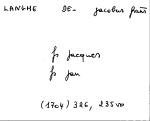 LANGHE DE - jacobus
fs jacques
fs jan
(1704) 326, 235vo